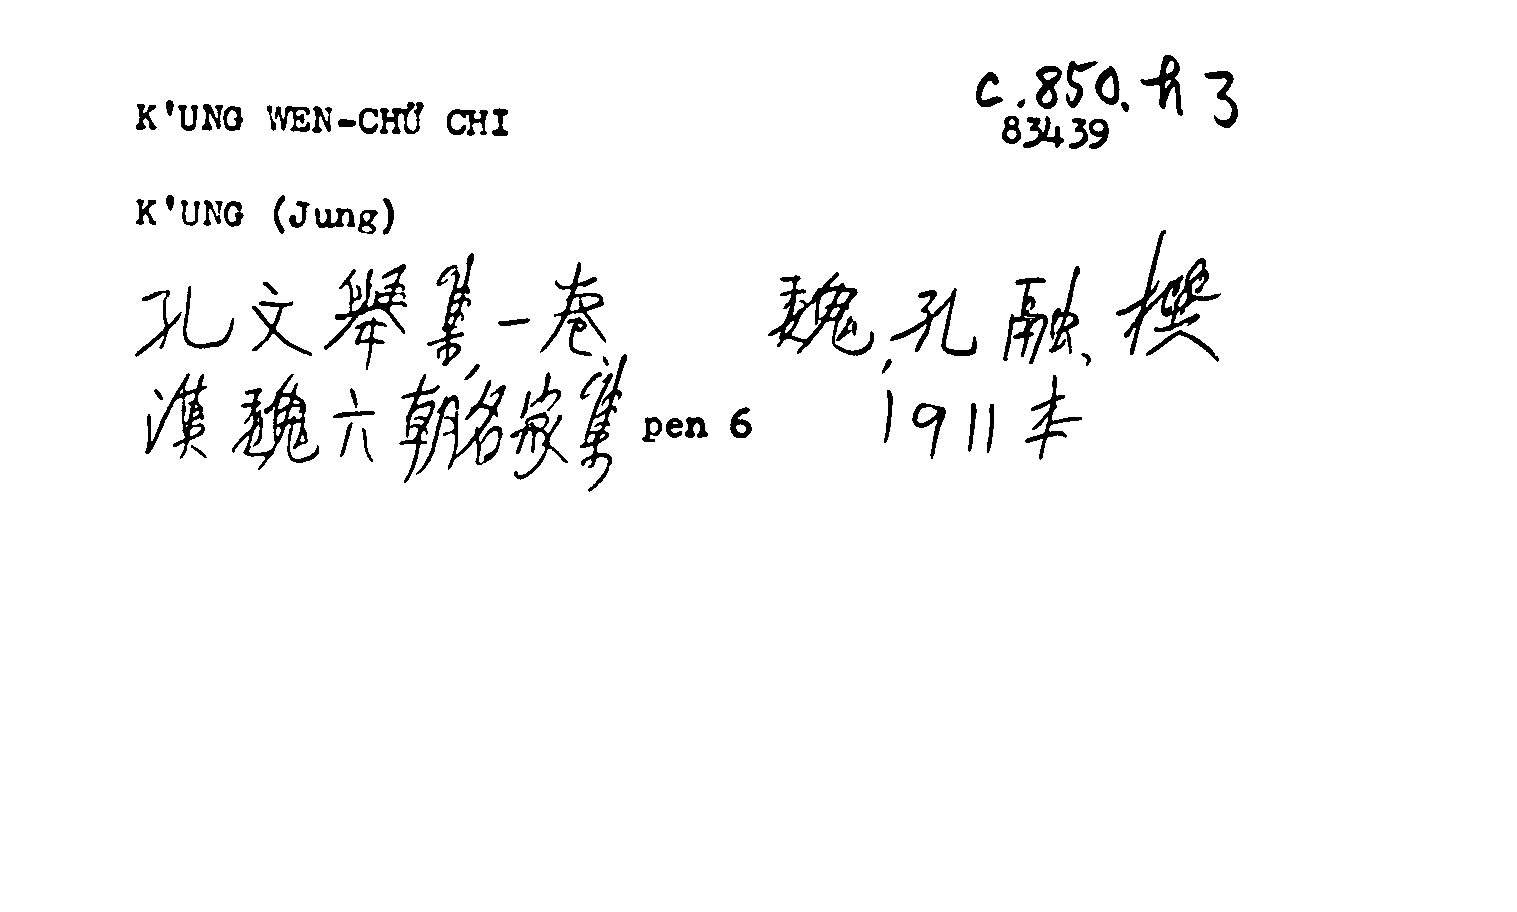 K'UNG WEN-CHÜ CHI
c.850.h 3
83439
K'UNG (Jung)
孔文舉集一卷 魏孔融撰
漢魏六朝名家集 pen 6 1911本